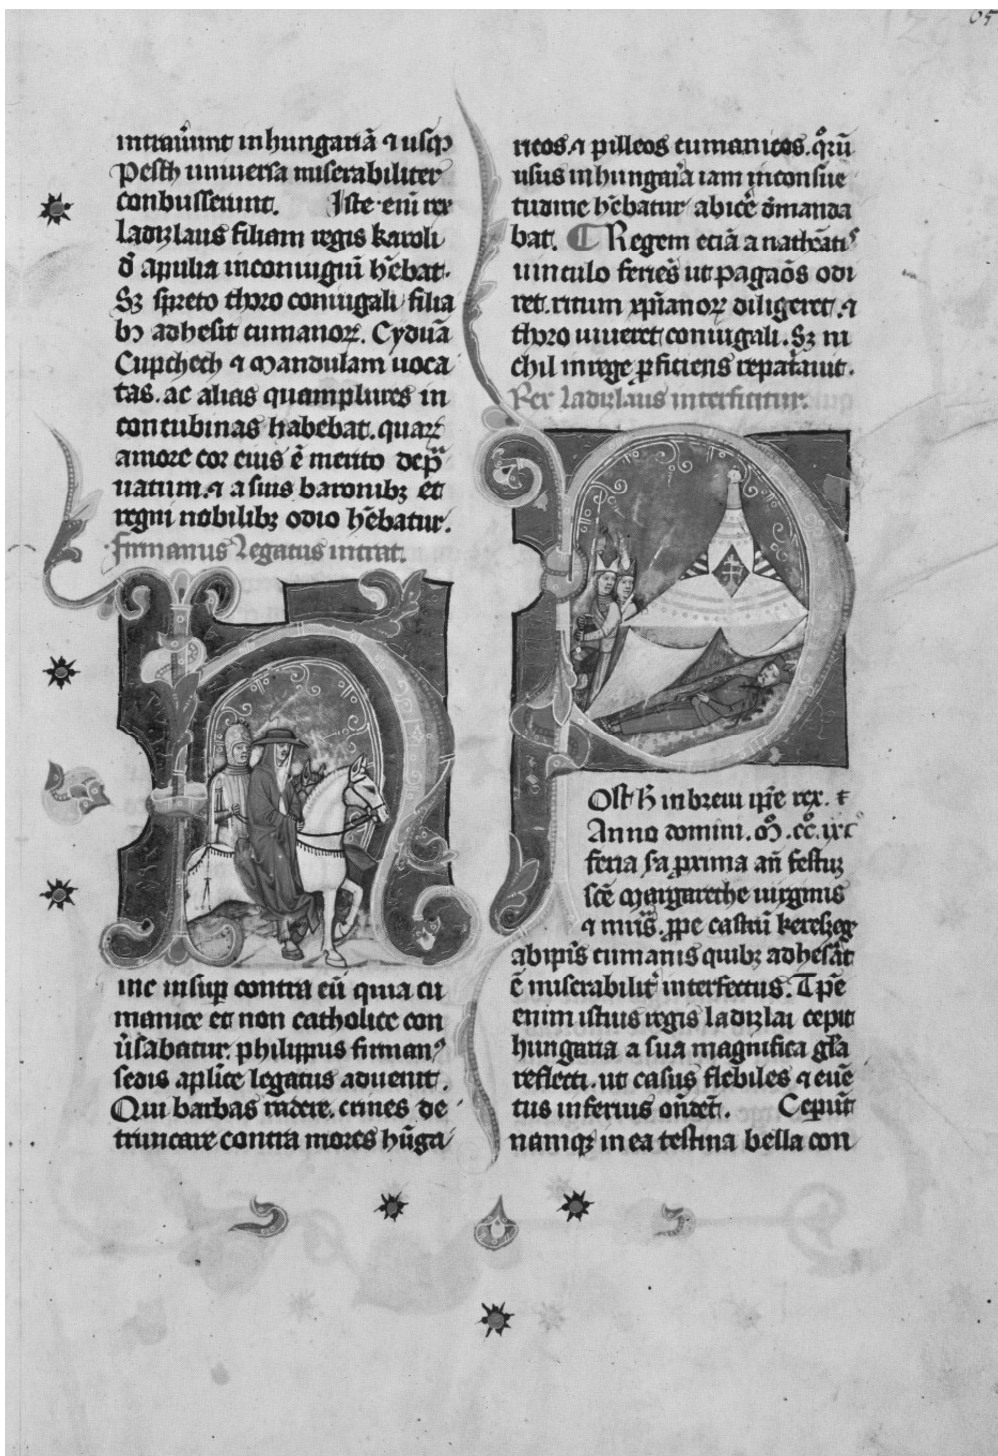 05
intrauͥunt in hungariā ⁊ usqꝫ
pesth uniuersa miserabiliter
conbusserunt. Iste· enī rex
ladizlaus filiam regis karoli
đ apulia in coniugiū hēbat·
Sꝫ spreto thoro coniugali filia
bꝫ adhesit cumanorꝝ. Cyduā
Cupchech ⁊ Mandulam uoca
tas. ac alias quamplures in
concubinas habebat. quarꝝ
amore cor eius ē merito dep̄
uatum. ⁊ a suis baronibꝫ et
regni nobilibꝫ odio hēbatur.
firmanus legatus intrat.
hinc insuꝑ contra eū quia cu
manice et non catholice con
ūsabatur. philippus firmanꝰ
sedis aplīce legatus aduenit.
Qui barbas radere. crines de
truncare contra mores hūga
ricos. ⁊ pilleos cumanicos. qͦrū
usus in hungaͥa iam in consue
tudine hēbatur abicͤe đmanda
bat. ¶ Regem eciā a nathēatiˢ
uinculo feriēs ut pagaōs odi
ret. ritum xp̄ianorꝝ diligeret. ⁊
thoro uiueret coniugali. Sꝫ ni
chil in rege ꝓficiens repatͥauit.
Rex ladizlaus interficitur.
Post ħ in breui ip̄e rex. ī
Anno domini. Mͦ. ccͦ. lxͦcͦ
feria s̄a ꝓxima an̄ festuꝫ
scē Margarethe uirginis
⁊ mr̄is. ꝓpe castrū kerezzeg
ab ip̄is cumanis quibꝫ adhes̄at
ē miserabilit͛ interfectus. Tp̄e
enim istius regis ladizlai cepit
hungaria a sua magnifica gl̄a
reflecti. ut casus flebiles ⁊ euē
tus inferius ondēt. Ceper̄ūt
namqꝫ intestina bella con